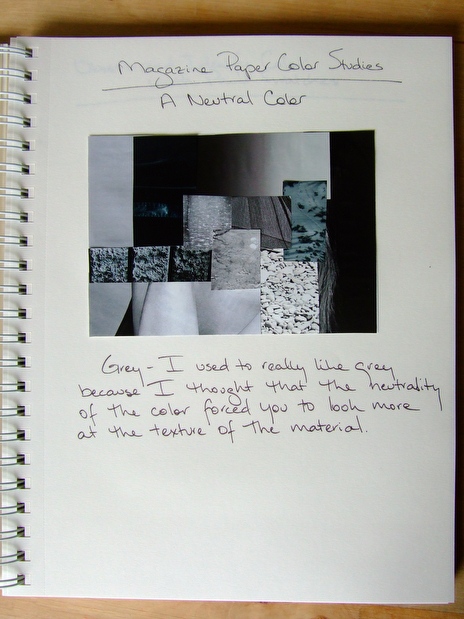 Magazine Paper Color Studies
A Neutral Color
Grey - I used to really like grey
because I thought that the neutrality
of the color forced you to look more
at the texture of the material.